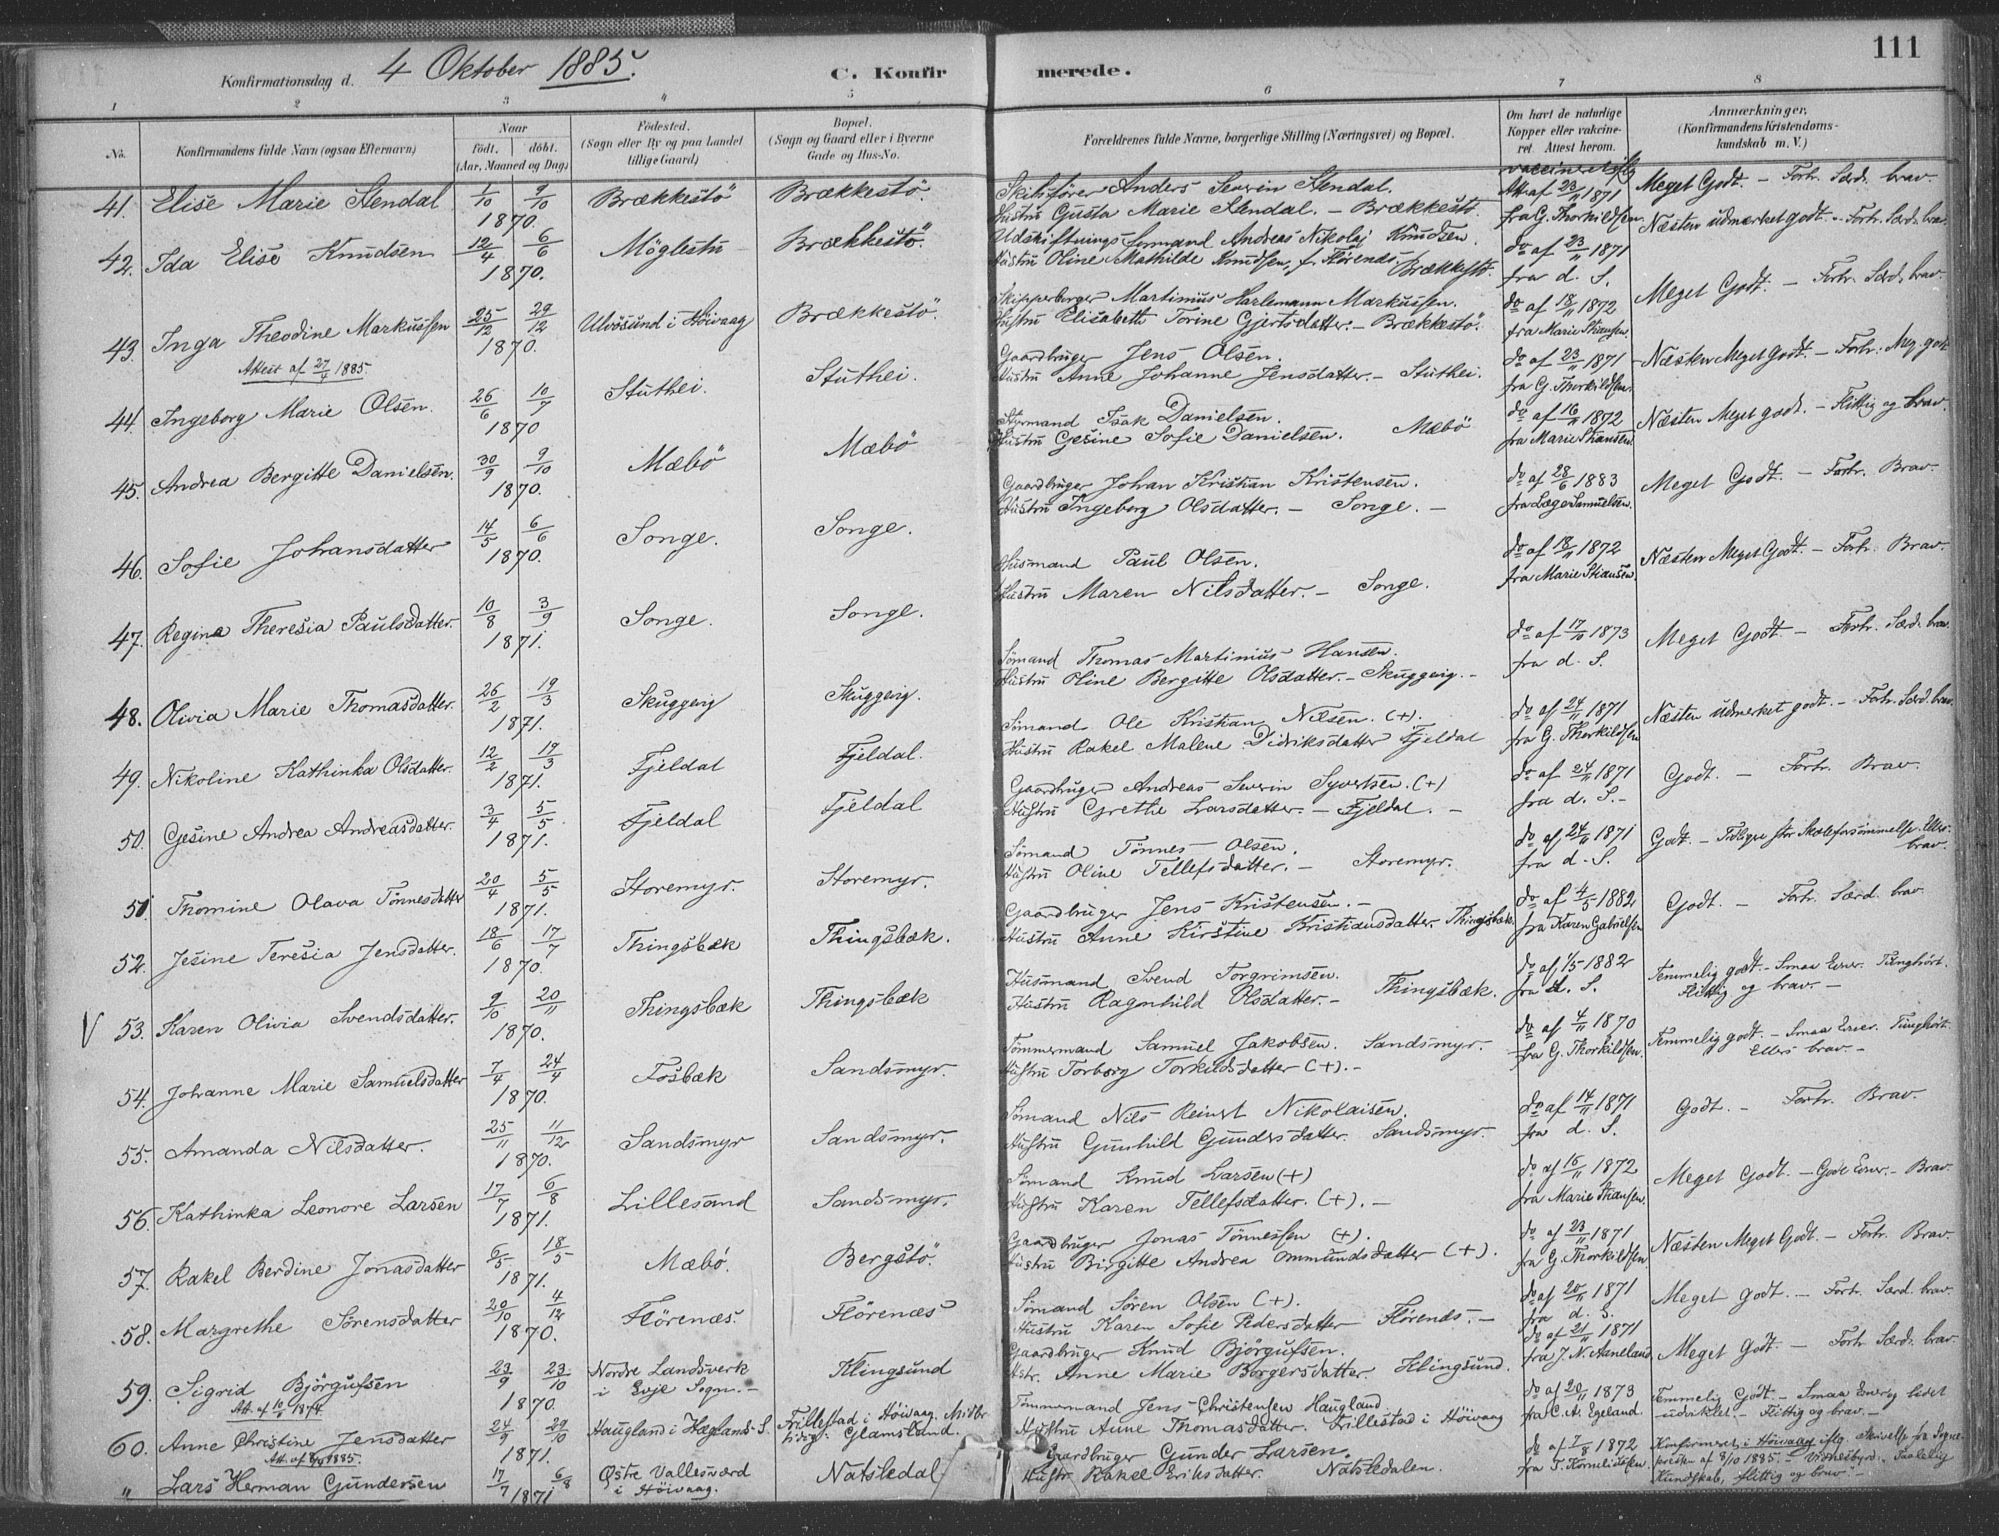 111
Konfirmationsdag d. 4 Oktober 1885.
C. Konfirmerede.
1 2 3 4 5 6 7 8
No. Konfirmandens fulde Navn (ogsaa Efternavn) Naar født. døbt. (Aar, Maaned og Dag) Fødested. (Sogn eller By og paa Landet tillige Gaard) Bopæl. (Sogn og Gaard eller i Byerne Gade og Hus-No. Forældrenes fulde Navne, borgerlige Stilling (Næringsvei) og Bopæl. Om havt de naturlige Kopper eller vaccineret. Attest herom. Anmærkninger, (Konfirmandens Kristendomskundskab m. V.)
41. Elise Marie Stendal 1/10 9/10 1870. Brækkestö Brækkestö. Skibsförer Anders Severin Stendal. Attr af 23/11 1871 Meget Godt. – Forh. Særd. brav.
Hustru Gusta Marie Stendal. – Brækkestö. fra G. Thorkildsen
42. Ida Elise Knudsen 12/4 6/6 1870. Möglestu Brækkestö. Udskiftningsformand Andreas Nikolaj Knudsen. do af 23/11 1871 Næsten udmærket godt. – Forh. Særd. brav
Hustru Oline Mathilde Knudsen, f. Flörenæs. Brækkestö. fra d. S.
43. Inga Theodine Markussen 25/12 29/12 1870. Ulvösund i Höivaag Brækkestö. Skipperborger Martinius Harlemann Markussen. do af 18/11 1872 Meget Godt. – Forh. Særd. brav.
Attest af 27/4 1885. Hustru Elisabeth Torine Gjertsdatter. – Brækkestö. fra Marie Stiansen
44. Ingeborg Marie Olsen. 26/6 10/7 1870 Stuthei. Stuthei. Gaardbruger Jens Olsen. do af 23/11 1871 Næsten Meget Godt. – Forh. Meg. godt
Hustru Anne Johanne Jensdatter. – Stuthei. fra G. Thorkildsen.
45. Andrea Bergitte Danielsen. 30/9 9/10 1870. Mæbö Mæbö Styrmand Isak Danielsen. do af 16/11 1872 Næsten Meget godt. – Flittig og brav.
Hustru Gesine Sofie Danielsen. Mæbö fra Marie Stiansen.
46. Sofie Johansdatter 14/5 6/6 1870. Songe. Songe. Gaardbruger Johan Kristian Kristensen. do af 28/6 1883 Meget Godt. – Forh. Brav.
Hustru Ingeborg Olsdatter. – Songe. – fra Læge Samuelsen.
47. Regina Theresia Paulsdatter. 10/8 3/9 1871. Songe. Songe. Husmand Paul Olsen. do af 18/11 1872 Næsten Meget Godt. – Forh. Brav.
Hustru Maren Nilsdatter. – Songe. fra Marie Stiansen.
48. Olivia Marie Thomasdatter. 26/2 19/3 1871. Skuggevig Skuggevig. Sömand Thomas Martinius Hansen. do af 17/10 1873 Meget Godt. – Forh. Særd. brav.
Hustru Oline Bergitte Olsdatter. – Skuggevig. – fra d. S.
49. Nikoline Kathinka Olsdatter. 12/2 19/3 1871. Fjeldal Fjeldal. Sömand Ole Kristian Nilsen. (+) do af 24/11 1871 Næsten udmerket godt. – Forh. Særd. brav.
Hustru Rakel Malene Didriksdatter Fjeldal fra G. Thorkildsen
50. Gesine Andrea Andreasdatter. 3/4 5/5 1871. Fjeldal Fjeldal Gaardbruger Andreas Severin Syvertsen. (+) do af 24/11 1871 Godt. – Forh. Brav.
Hustru Grethe Larsdatter. – Fjeldal. – fra d. S. –
51. Thomine Olava Tönnesdatter 20/4 5/5 1871. Storemyr. Storemyr. Sömand Tönnes Olsen. do af 24/11 1871 Godt. – Tidligere stor Skoleforsömmelse. Ellers brav.
Hustru Oline Tellefsdatter. – Storemyr. fra d. S.
52. Jesine Teresia Jensdatter. 18/6 17/7 1870. Thingsbæk Thingsbæk. Gaardbruger Jens Kristensen. – do af 4/5 1882 Godt. – Forh. Særd. brav
Hustru Anne Kirstine Kristiansdatter. Thingsbæk. fra Karen Gabrielsen
V 53. Karen Olivia Svendsdatter. 9/10 20/11 1870. Thingsbæk Thingsbæk Husmand Svend Torgrimsen. do af 1/5 1882 Temmelig godt. – Smaa Evner. Tunghört. Flittig og brav. –
Hustru Ragnhild Olsdatter. – Thingsbæk. fra d. S.
54. Johanne Marie Samuelsdatter 7/4 24/4 1870. Fosbæk Sandsmyr. Tömmermand Samuel Jakobsen. Sandsmyr. do af 4/11 1870 Temmelig godt. – Smaa Evner. Tunghört. Ellers brav. –
Hustru Torborg Torkildsdatter (+). – fra G. Thorkildsen.
55. Amanda Nilsdatter. 25/11 11/12 1870. Sandsmyr Sandsmyr. Sömand Nils Reinert Nikolaisen. do af 14/11 1871 Godt. – Forh. Brav.
Hustru Gunhild Gundersdatter. Sandsmyr. fra d. S.
56. Kathinka Leonore Larsen 17/7 6/8 1871. Lillesand Sandsmyr. Sömand Knud Larsen (+) do af 16/11 1872 Meget Godt. – Gode Evner. – Brav.
Hustru Karen Tellefsdatter. (+). – fra Marie Stiansen.
57. Rakel Berdine Jonasdatter 6/5 18/5 1871. Mæbö. Bergstö. Gaardbruger Jonas Tönnessen (+). do af 23/11 1871 Næsten Meget Godt. – Forh. Brav.
Hustru Birgitte Andrea Ommundsdatter (+). fra G. Thorkildsen
58. Margrethe Sörensdatter 20/10 4/12 1870. Flörenæs. Flörenæs Sömand Sören Olsen (+). do af 20/11 1871 Meget godt. – Forh. Særd. brav.
Hustru Karen Sofie Pedersdatter Flörenæs. – fra d. S.
59. Sigrid Björgufsen 23/9 23/10 1870. Nordre Landsverk i Evje Sogn. – Klingsund Gaardbruger Knud Björgufsen. do af 21/11 1871 Meget Godt. – Forh Særd. brav.
Hstr. Anne Marie Borgersdatter. Klingsund. fra J. N. Aaneland
60. Anne Christine Jensdatter 24/9 29/10 1871. Haugland i Hæglands S. Frillestad i Höivaag. Glamsland. Tömmermand Jens Christensen Haugland. do af 20/11 1873 Temmelig Godt. – Smaa Evner lidet udviklet. – Flittig og brav. –
Hustru Anne Thomasdatter. Frillestad i Höivaag fra C. A. Egeland.
" Lars Herman Gundersen 17/7 6/8 1871 Østre Vallesværd i Höivaag. Natsledal Gaardbruger Gunder Larsen. do af 7/8 1872 Konfirmeret i Höivaag iflg. Skrivelse fra Sognepresten af 8/10 1885. – Kundskab, flittig og brav. –
Hustr Rakel Eriksdatter. Natsledalen. fra T. Korneliussen